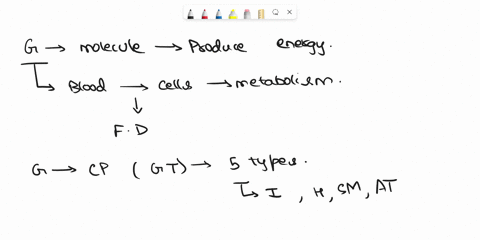 G → molecule → Produce energy.
↳ Blood → cells → metabolism.
↓
F.D
G → CP (GT) → 5 types.
↳ I, H, SM, AT